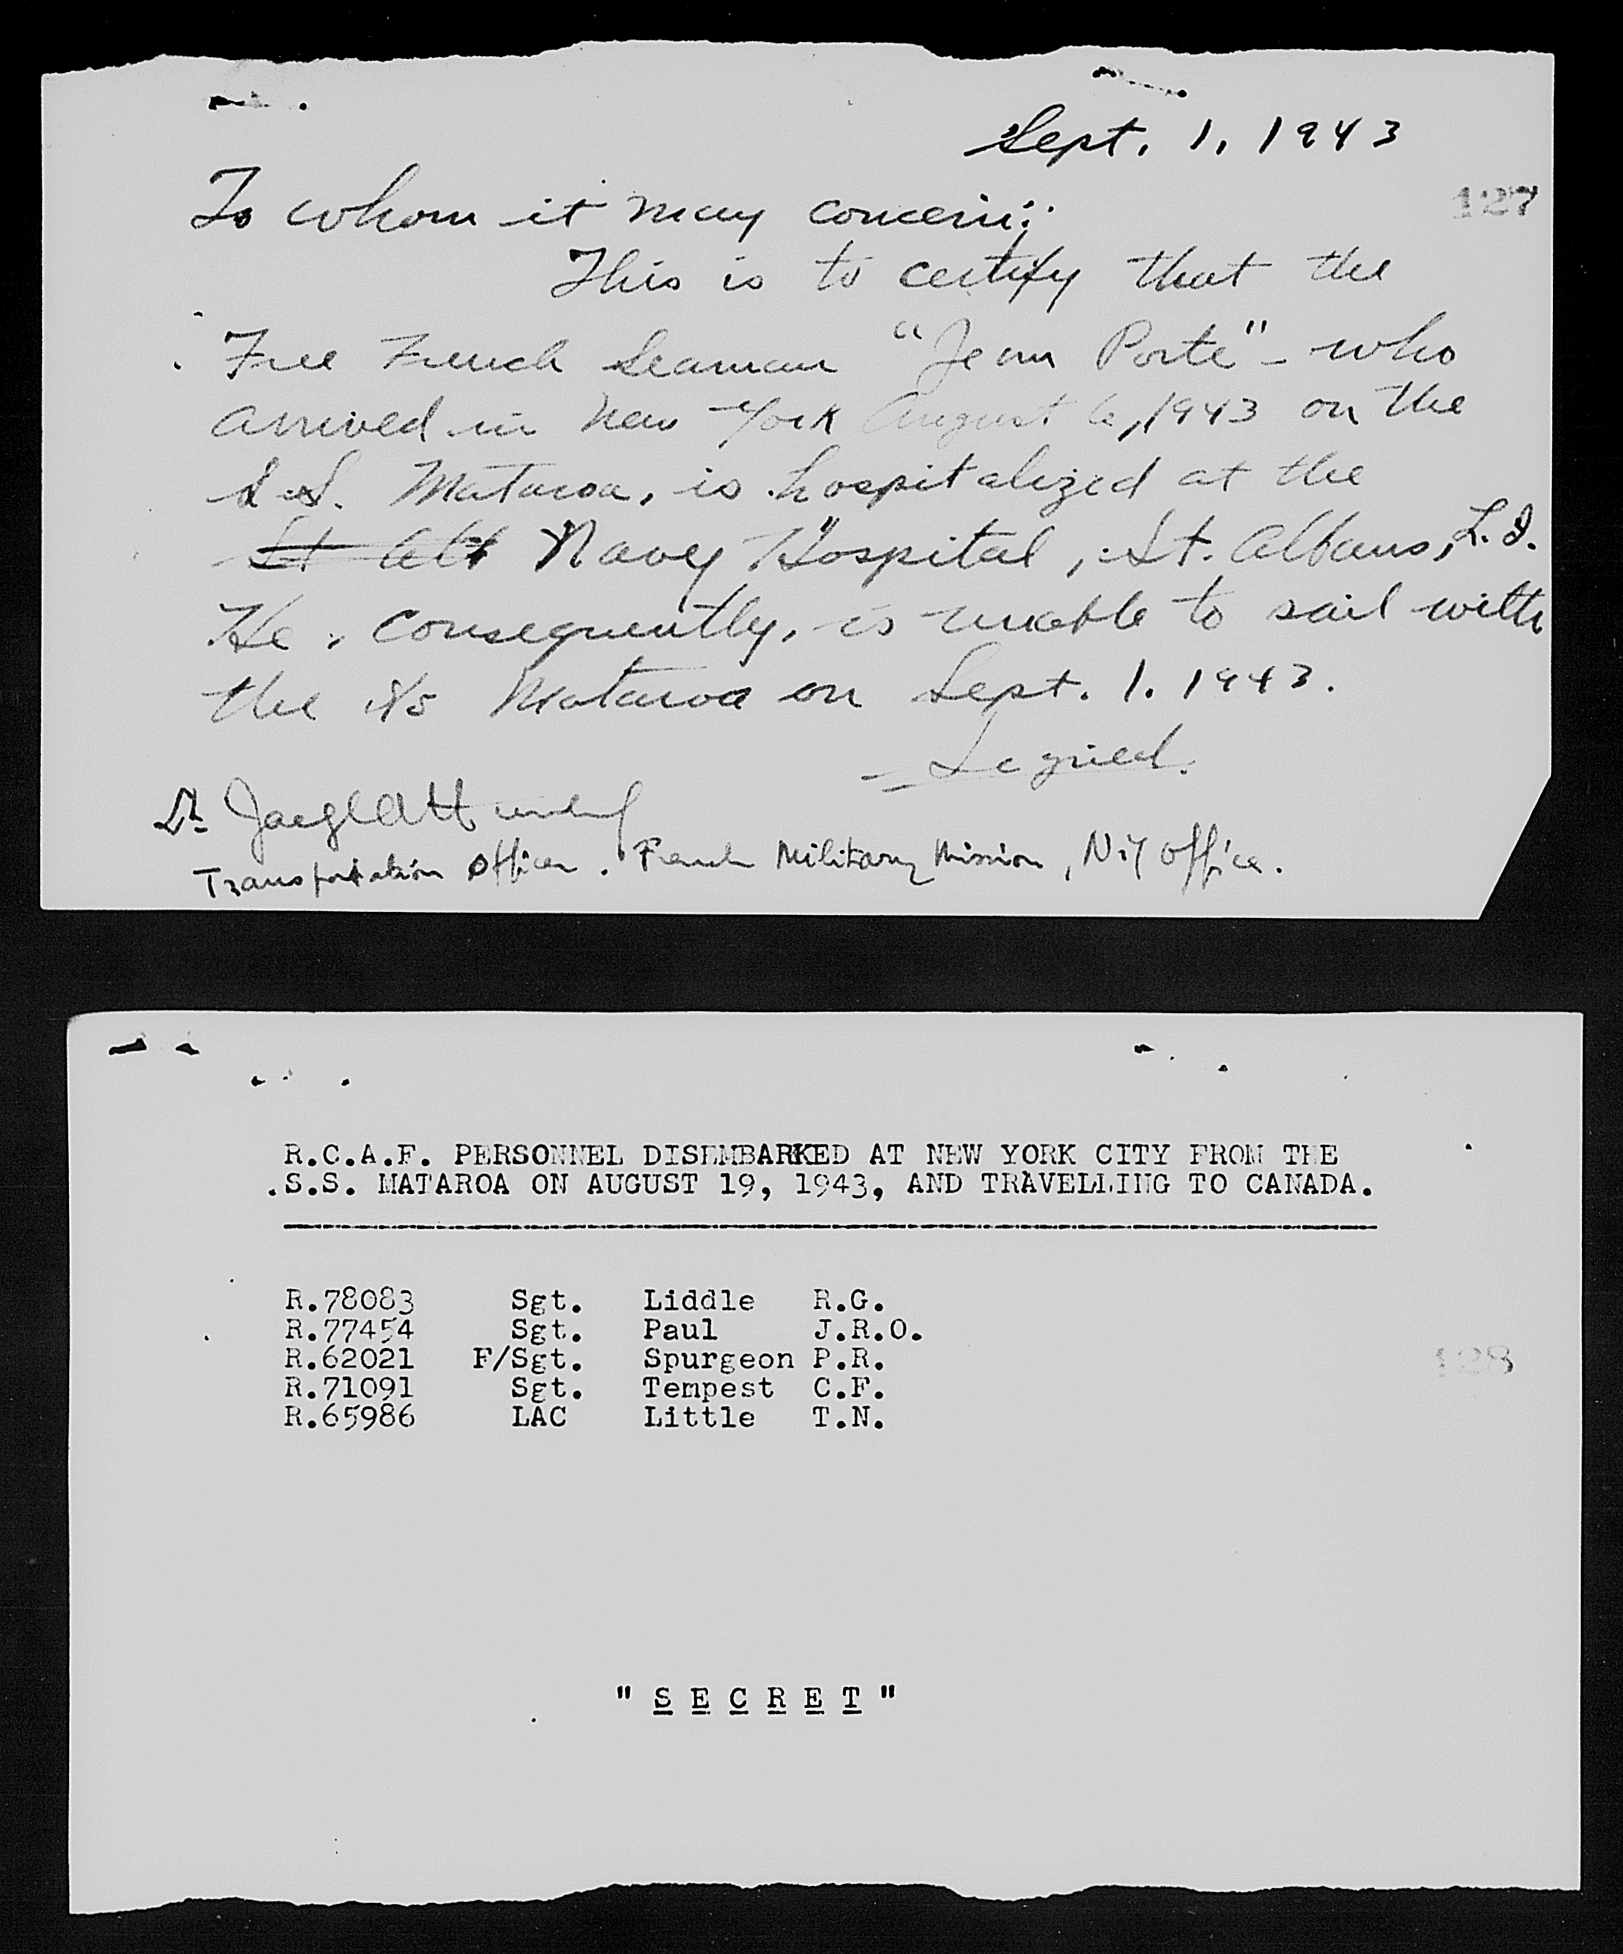 Sept. 1, 1943
127
To whom it may concern;
This is to certify that the
Free French Seaman "Jean Porte" - who
arrived in New York August 6, 1943 on the
S.S. Mataroa, is hospitalized at the
St Alb Navy Hospital, St. Albans, L.I.
He, consequently, is unable to sail with
the S/S Mataroa on Sept. 1. 1943.
Signed.
Lt.
Transportation Officer. French Military Mission, N.Y Office.
R.C.A.F. PERSONNEL DISEMBARKED AT NEW YORK CITY FROM THE
S.S. MATAROA ON AUGUST 19, 1943, AND TRAVELLING TO CANADA.
R.78083 Sgt. Liddle R.G.
R.77454 Sgt. Paul J.R.O.
R.62021 F/Sgt. Spurgeon P.R.
R.71091 Sgt. Tempest C.F.
R.65986 LAC Little T.N.
128
"S E C R E T"